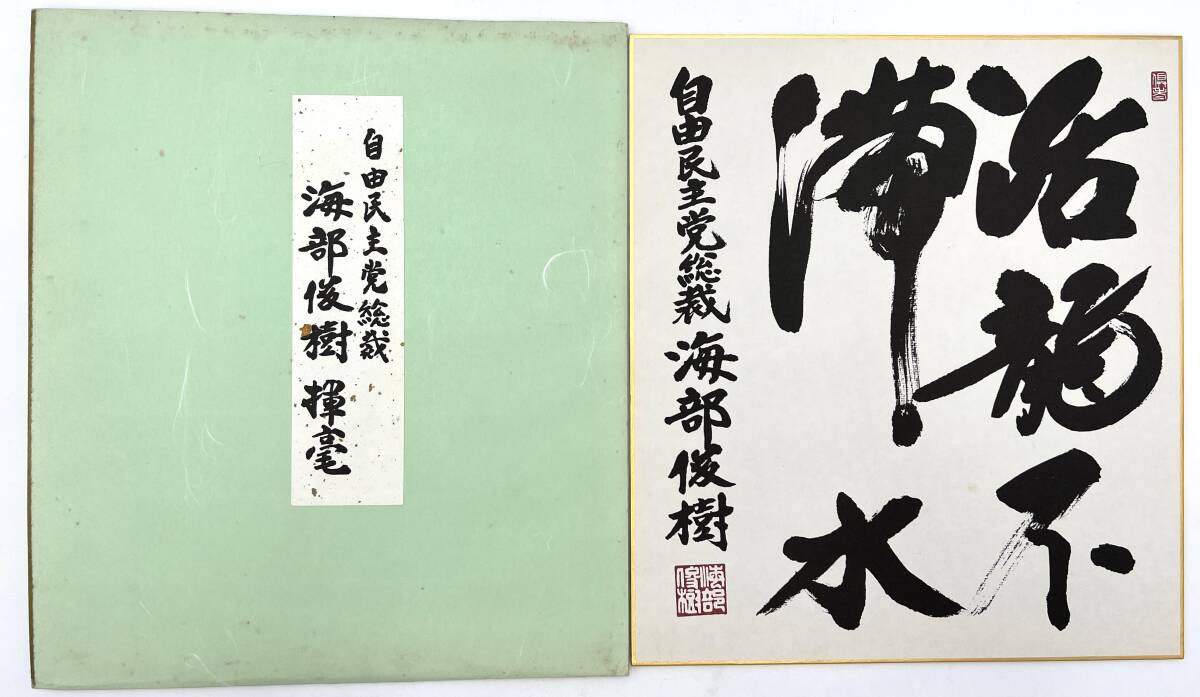 自由民主党総裁
海部俊樹 揮毫
活龍不
滞水
自由民主党総裁 海部俊樹
海部
俊樹